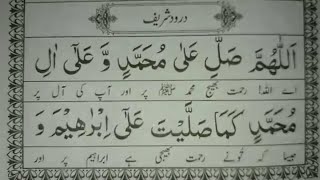 درود شریف
اَللّٰهُمَّ صَلِّ عَلٰی مُحَمَّدٍ وَّ عَلٰٓی اٰلِ
اے اللہ! رحمت بھیج محمد ﷺ پر اور آپ کی آل پر
مُحَمَّدٍ کَمَا صَلَّیْتَ عَلٰٓی اِبْرٰهِیْمَ وَ
جیسا کہ تونے رحمت بھیجی ہے ابراہیم پر اور